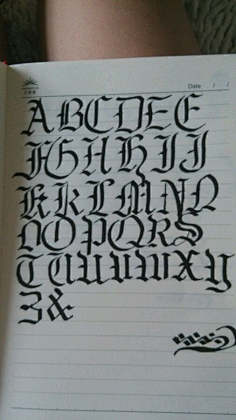 Date / /
ABCDEE
FGHHIJ
KKLMNN
NOPQRS
TUUUVWXY
Z&